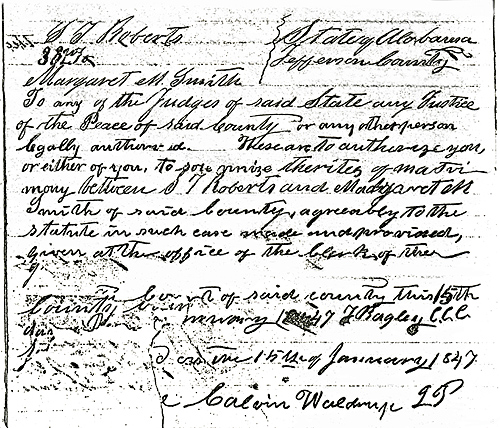 S T Roberts
State of Alabama
Jefferson County
Margaret M. Smith
To any of the Judges of said State any Justice
of the Peace of said County or any other person
legally authorised. These are to authorize you
or either of you, to solemnize the rites of matri
mony between S T Roberts and Margaret M
Smith of said County, agreeably to the
statute in such case made and provided,
given at the office of the clerk of the
County Court of said county this 15th
1847 J Bagley C.C.C.
the 15th of January 1847
Calvin Waldrup JP